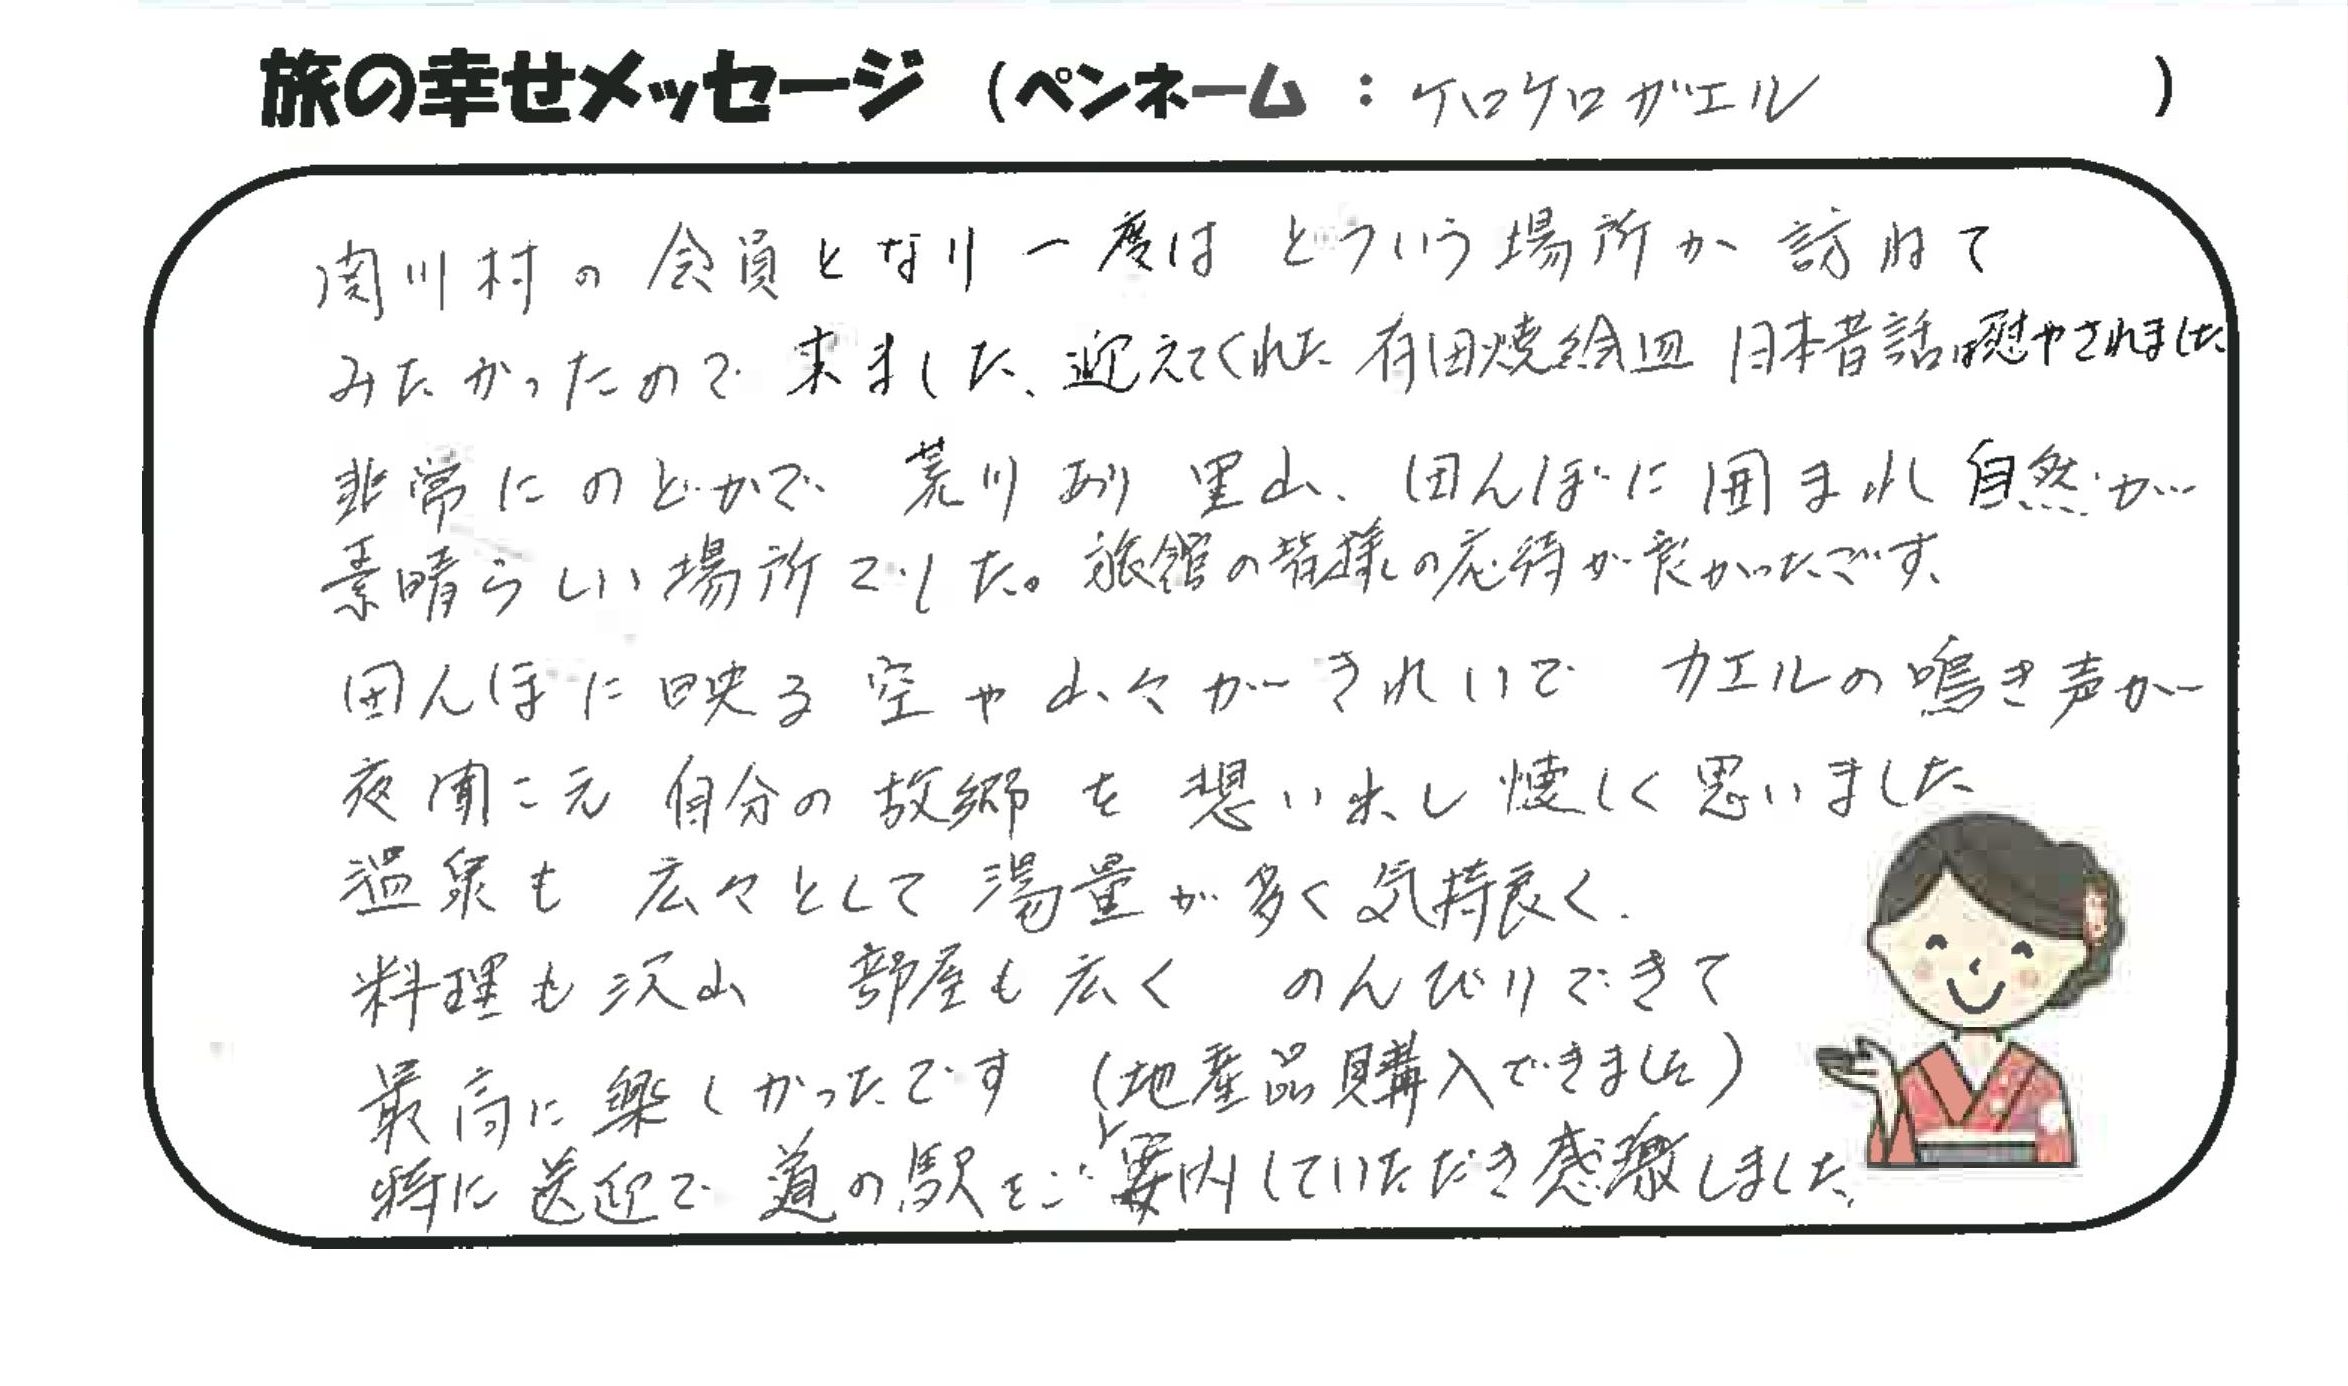 旅の幸せメッセージ (ペンネーム : ケロケロガエル )
関川村の会員となり一度は どういう場所か 訪ねて
みたかったので 来ました、迎えてくれた 有田焼絵皿 日本昔話は慰やされました
非常にのどかで 荒川あり 里山、田んぼに囲まれ 自然が
素晴らしい場所でした。旅館の皆様の応待が良かったです、
田んぼに映る 空や山々がきれいで カエルの鳴き声が
夜聞こえ 自分の故郷を想い出し懐しく思いました
温泉も 広々として湯量が多く気持良く、
料理も沢山 部屋も広く のんびりできて
最高に楽しかったです (地産品購入できました)
特に送迎で 道の駅をご案内していただき感激しました、